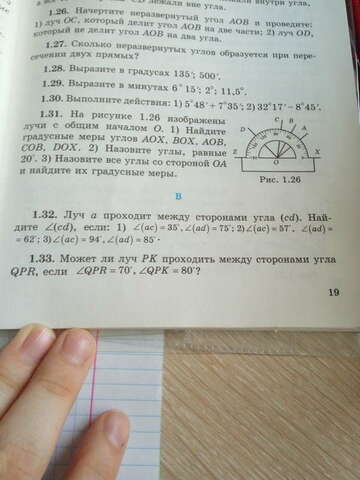 лежали вне угла.
1.26. Начертите неразвернутый угол AOB и проведите:
1) луч OC, который делит угол AOB на две части; 2) луч OD,
который не делит угол AOB на два угла.
1.27. Сколько неразвернутых углов образуется при пере-
сечении двух прямых?
1.28. Выразите в градусах 135′; 500′.
1.29. Выразите в минутах 6°15′; 2°; 11,5°.
1.30. Выполните действия: 1) 5°48′ + 7°35′; 2) 32°17′ − 8°45′.
1.31. На рисунке 1.26 изображены
лучи с общим началом O. 1) Найдите
градусные меры углов AOX, BOX, AOB,
COB, DOX. 2) Назовите углы, равные
20°. 3) Назовите все углы со стороной OA
и найдите их градусные меры.
C
B
D
A
Z
X
O
Рис. 1.26
В
1.32. Луч a проходит между сторонами угла (cd). Най-
дите ∠(cd), если: 1) ∠(ac) = 35°, ∠(ad) = 75°; 2) ∠(ac) = 57°, ∠(ad) =
= 62°; 3) ∠(ac) = 94°, ∠(ad) = 85°.
1.33. Может ли луч PK проходить между сторонами угла
QPR, если ∠QPR = 70°, ∠QPK = 80°?
19